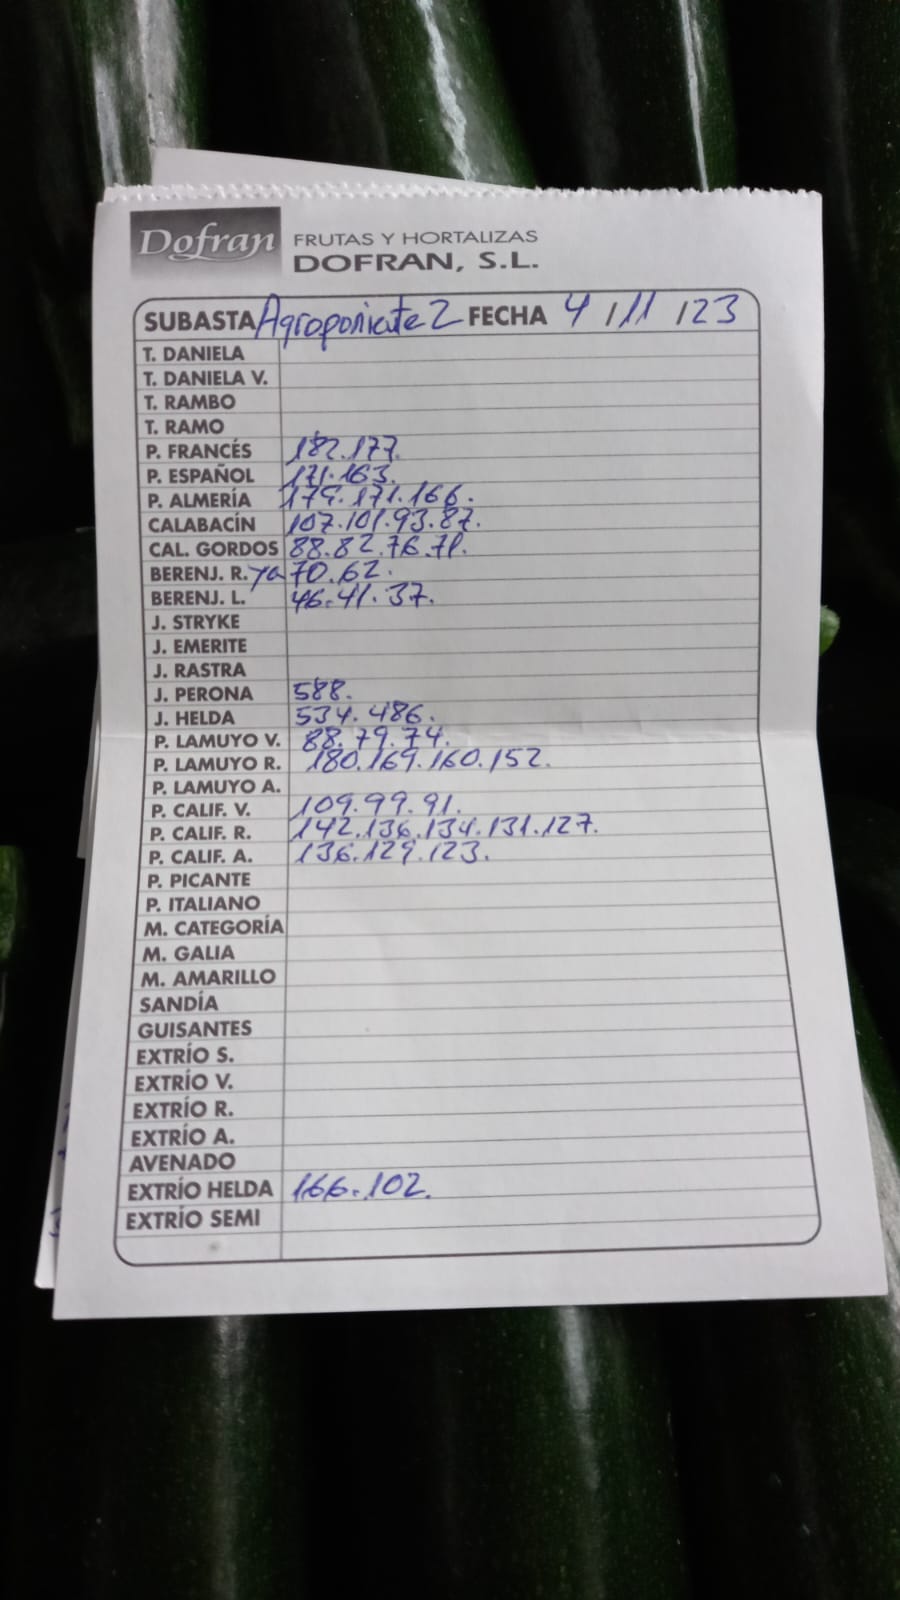 Dofran FRUTAS Y HORTALIZAS
DOFRAN, S.L.
SUBASTA Agroponiente 2 FECHA 4 / 11 / 23
T. DANIELA
T. DANIELA V.
T. RAMBO
T. RAMO
P. FRANCÉS 182.177.
P. ESPAÑOL 171.163.
P. ALMERÍA 179.171.166.
CALABACÍN 107.101.93.87.
CAL. GORDOS 88.82.76.71.
BERENJ. R. ya 70.62.
BERENJ. L. 46.41.37.
J. STRYKE
J. EMERITE
J. RASTRA
J. PERONA 588.
J. HELDA 534.486.
P. LAMUYO V. 88.79.74.
P. LAMUYO R. 180.169.160.152.
P. LAMUYO A.
P. CALIF. V. 109.99.91.
P. CALIF. R. 142.136.134.131.127.
P. CALIF. A. 136.129.123.
P. PICANTE
P. ITALIANO
M. CATEGORÍA
M. GALIA
M. AMARILLO
SANDÍA
GUISANTES
EXTRÍO S.
EXTRÍO V.
EXTRÍO R.
EXTRÍO A.
AVENADO
EXTRÍO HELDA 166.102.
EXTRÍO SEMI